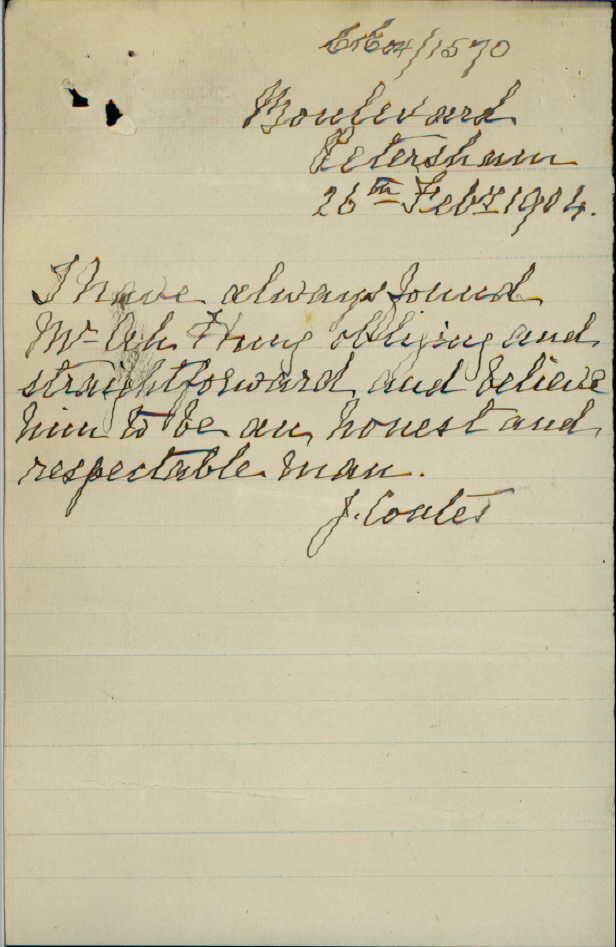 04/1570
Boulevard
Petersham
26th Feby 1904.
I have always found
Mr Ah Hung obliging and
straightforward and believe
him to be an honest and
respectable man.
J. Coates